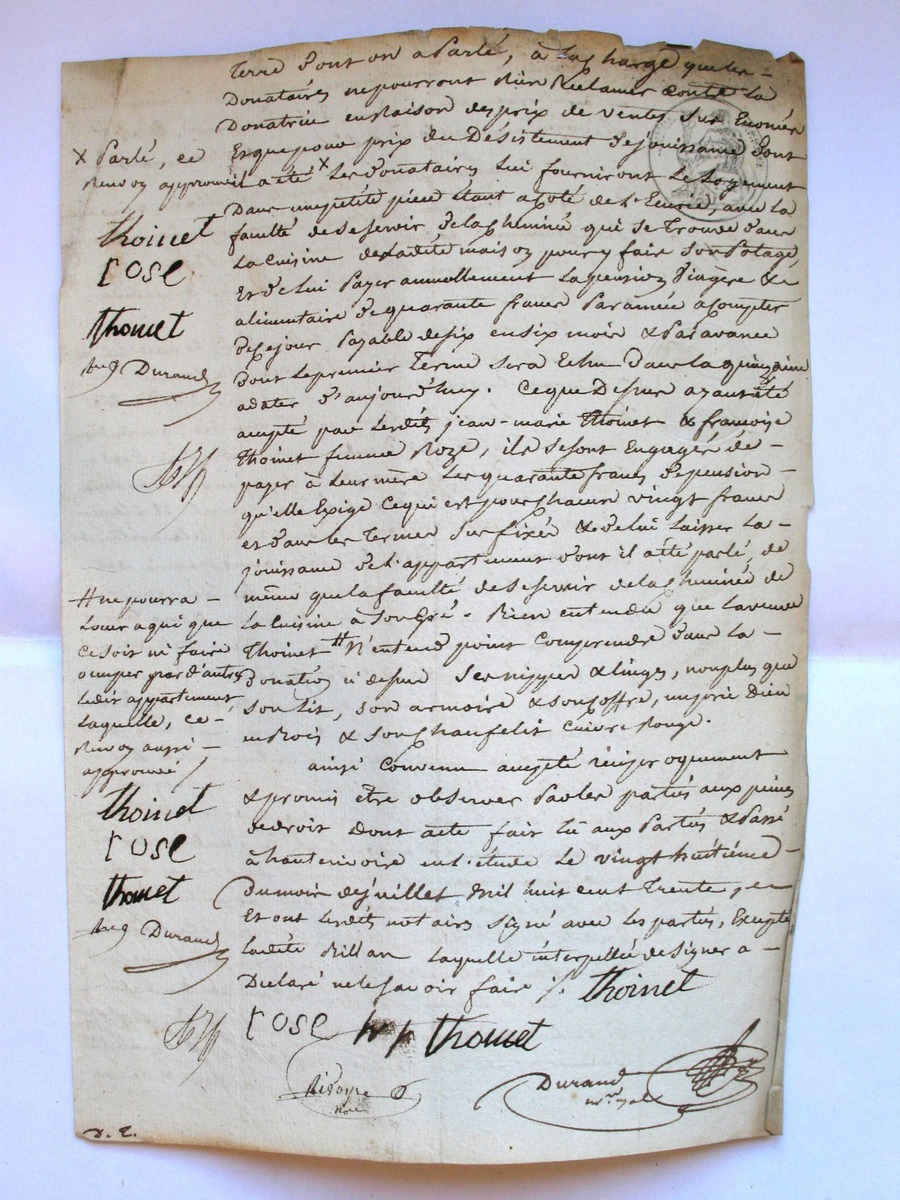 Terre dont on a Parlé, à la Charge que les
Donataires ne pourront Rien Réclamer contre La
Donatrice en Raison des prix de ventes sus Enoncés
Et que pour prix du Désistement de jouissance dont
il a été × Les donataires Lui fourniront Le Logement
Dans une petite pièce étant a Coté de L'Ecurie, avec La
faculté de se servir de la cheminée qui se Trouve dans
La Cuisine de Ladite maison pour y faire son Potage,
Et de lui Payer annuellement La pension Viagère &
alimentaire de quarante francs Par année à Compter
de ce jour Payable de six en six mois & Par avance
dont Le premier Terme sera Echu dans La quinzaine
a dater d'aujourd'huy. Ce que Dessus ayant été
accepté par Lesdits jean-marie Thoinet & françoise
Thoinet femme Roze, ils se sont Engagés de
payer à Leur mère Les quarante francs de pension
qu'elle Exige Ce qui est pour chacun vingt francs
et dans les Termes sus fixés & de lui Laisser La
jouissance de L'appartement dont il a été parlé, de
même que la faculté de se servir de la cheminée de
La Cuisine à Son Gré. Rien entendu que La veuve
Thoinet # N'entend point Comprendre dans La
Donation ci dessus Ses nippes & linges, non plus que
Son Lit, son armoire & son Coffre,
en Bois & son Chaufelit Cuivre Rouge.
ainsi Convenu accepté réciproquement
& promis être observer Par les parties aux peines
de droit Dont acte fait Lu aux Parties & Passé
à hauterivoire en L'étude Le vingt huitième
Du mois de juillet Mil huit cent Trente,
Et ont Lesdits notaires Signé avec Les parties, Excepté
Ladite Rillan Laquelle interpellée de signer a
Déclaré ne le savoir faire /. Thoinet
rose Thoinet
Durand
× Parlé, ce
Renvoy approuvé
Thoinet
rose
Thoinet
Durand
# ne pourra
Louer a qui que
ce soit ni faire
occuper par d'autres
Ledit appartement
Laquelle, ce
Renvoy aussi
approuvé /
Thoinet
rose
Thoinet
Durand